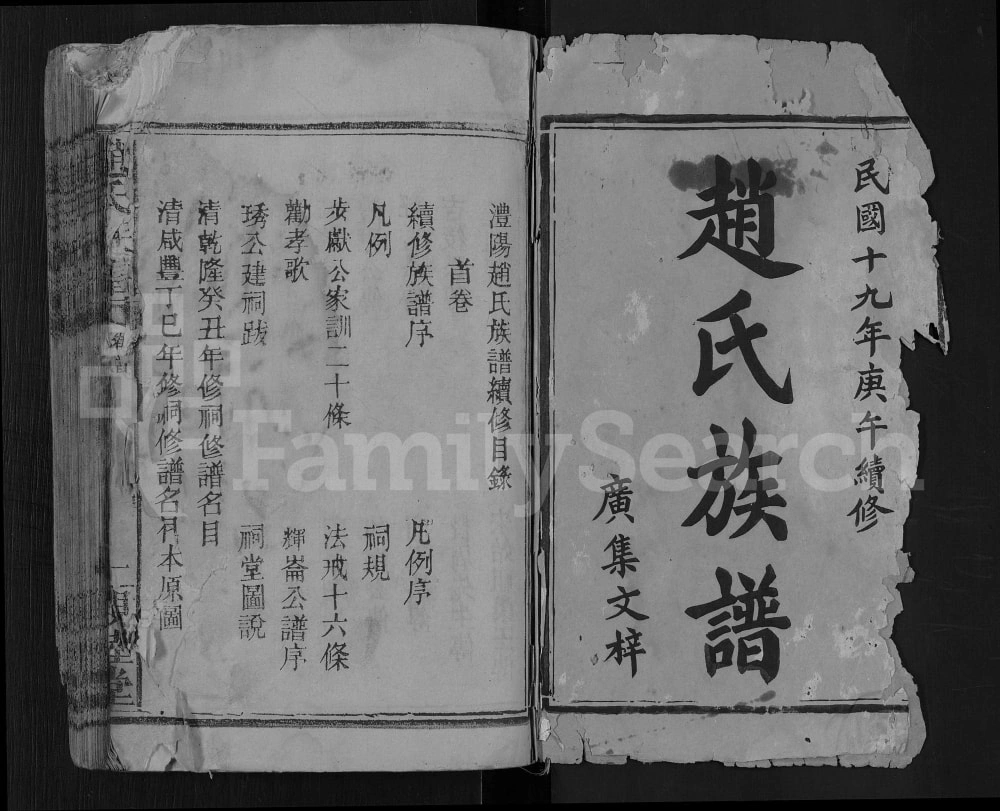 民國十九年庚午續修
趙氏族譜
廣集文梓
澧陽趙氏族譜續修目錄
首卷
續修族譜序 凡例序
凡例 祠規
步獻公家訓二十條 法戒十六條
勸孝歌 輝崙公譜序
琇公建祠跋 祠堂圖說
清乾隆癸丑年修祠修譜名目
清咸豐丁巳年修祠修譜名目本原圖
趙氏族譜
堂
FamilySearch